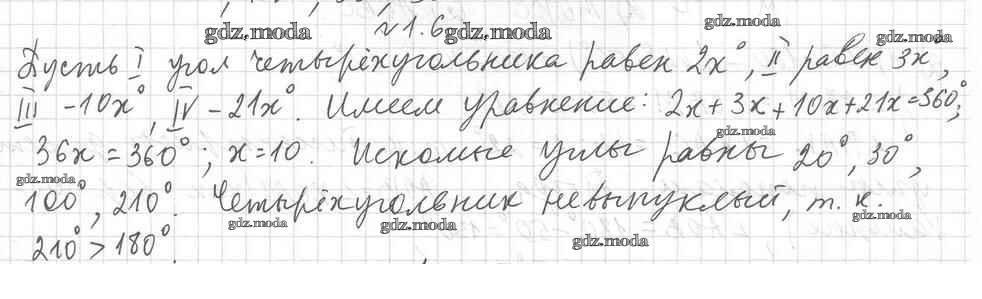 №1.6
gdz.moda gdz.moda gdz.moda gdz.moda
Пусть I угол четырёхугольника равен 2x°, II равен 3x°,
III -10x°, IV -21x°. Имеем уравнение: 2x+3x+10x+21x=360°;
gdz.moda
36x=360°; x=10. Искомые углы равны 20°, 30°,
gdz.moda
100°, 210°. Четырёхугольник невыпуклый, т. к.
gdz.moda gdz.moda gdz.moda
210°>180°.
gdz.moda